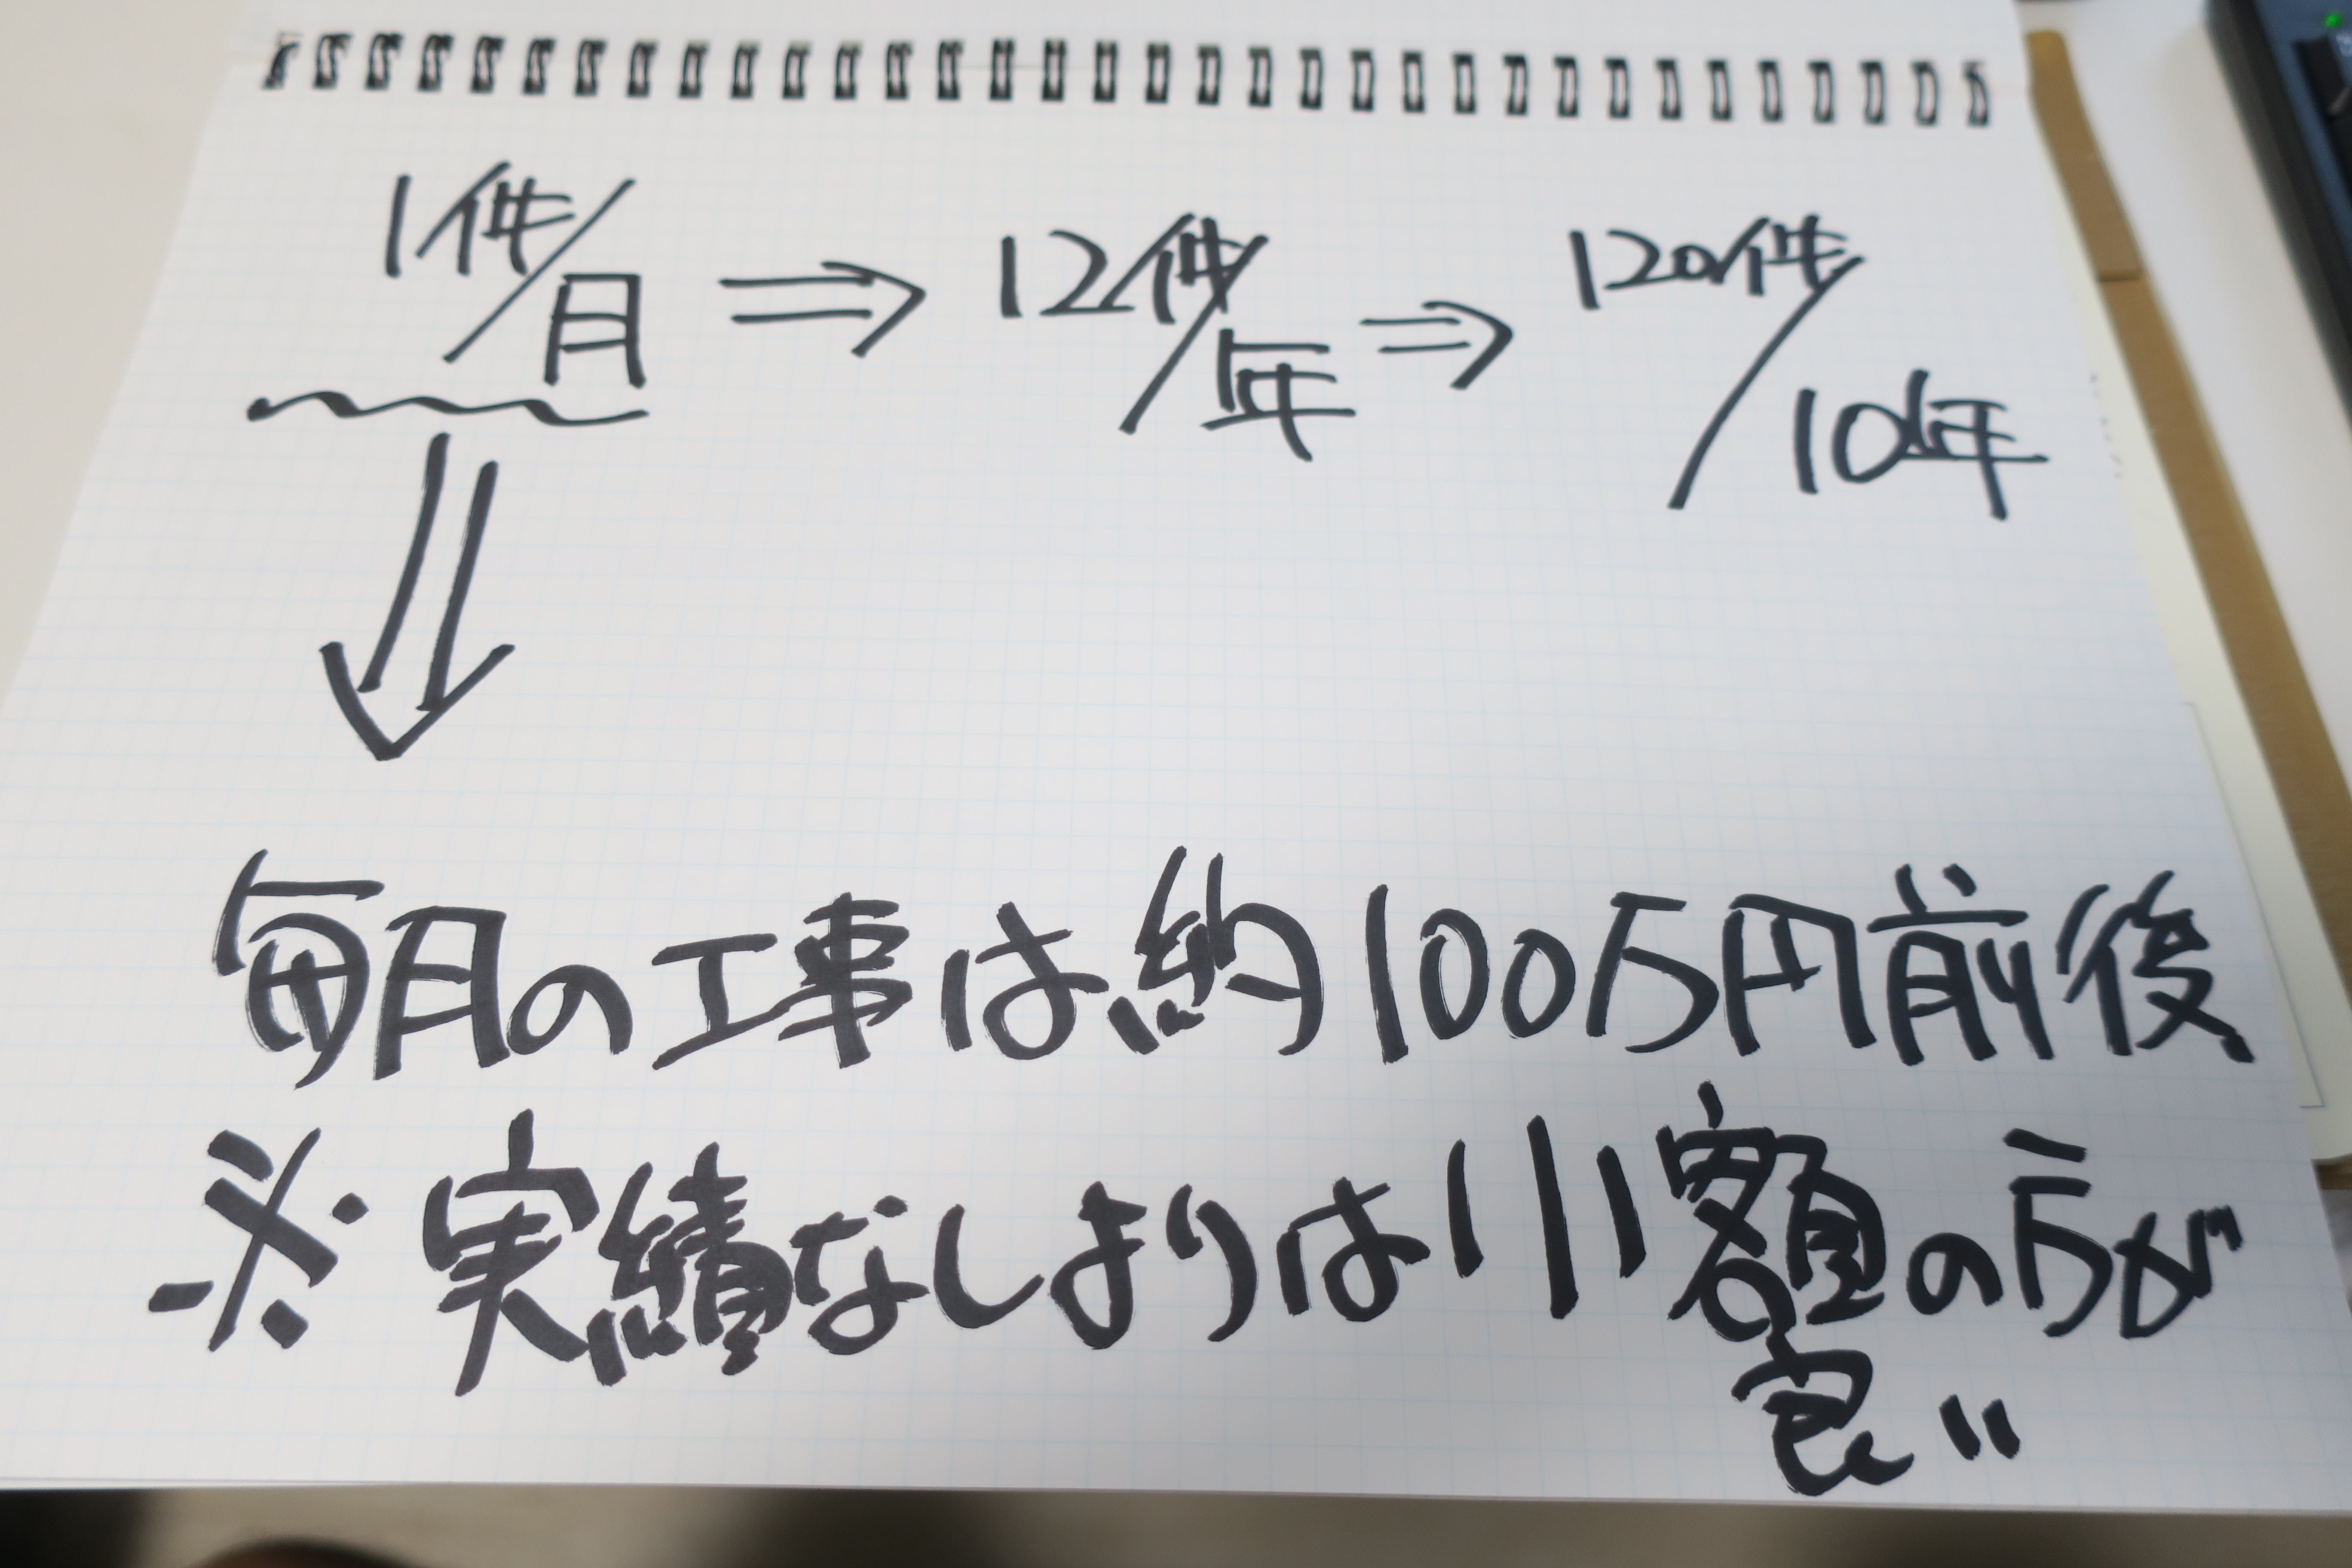 1件/月 ⇒ 12件/年 ⇒ 120件/10年
毎月の工事は約100万円前後
※実績なしよりは小額の方が
良い